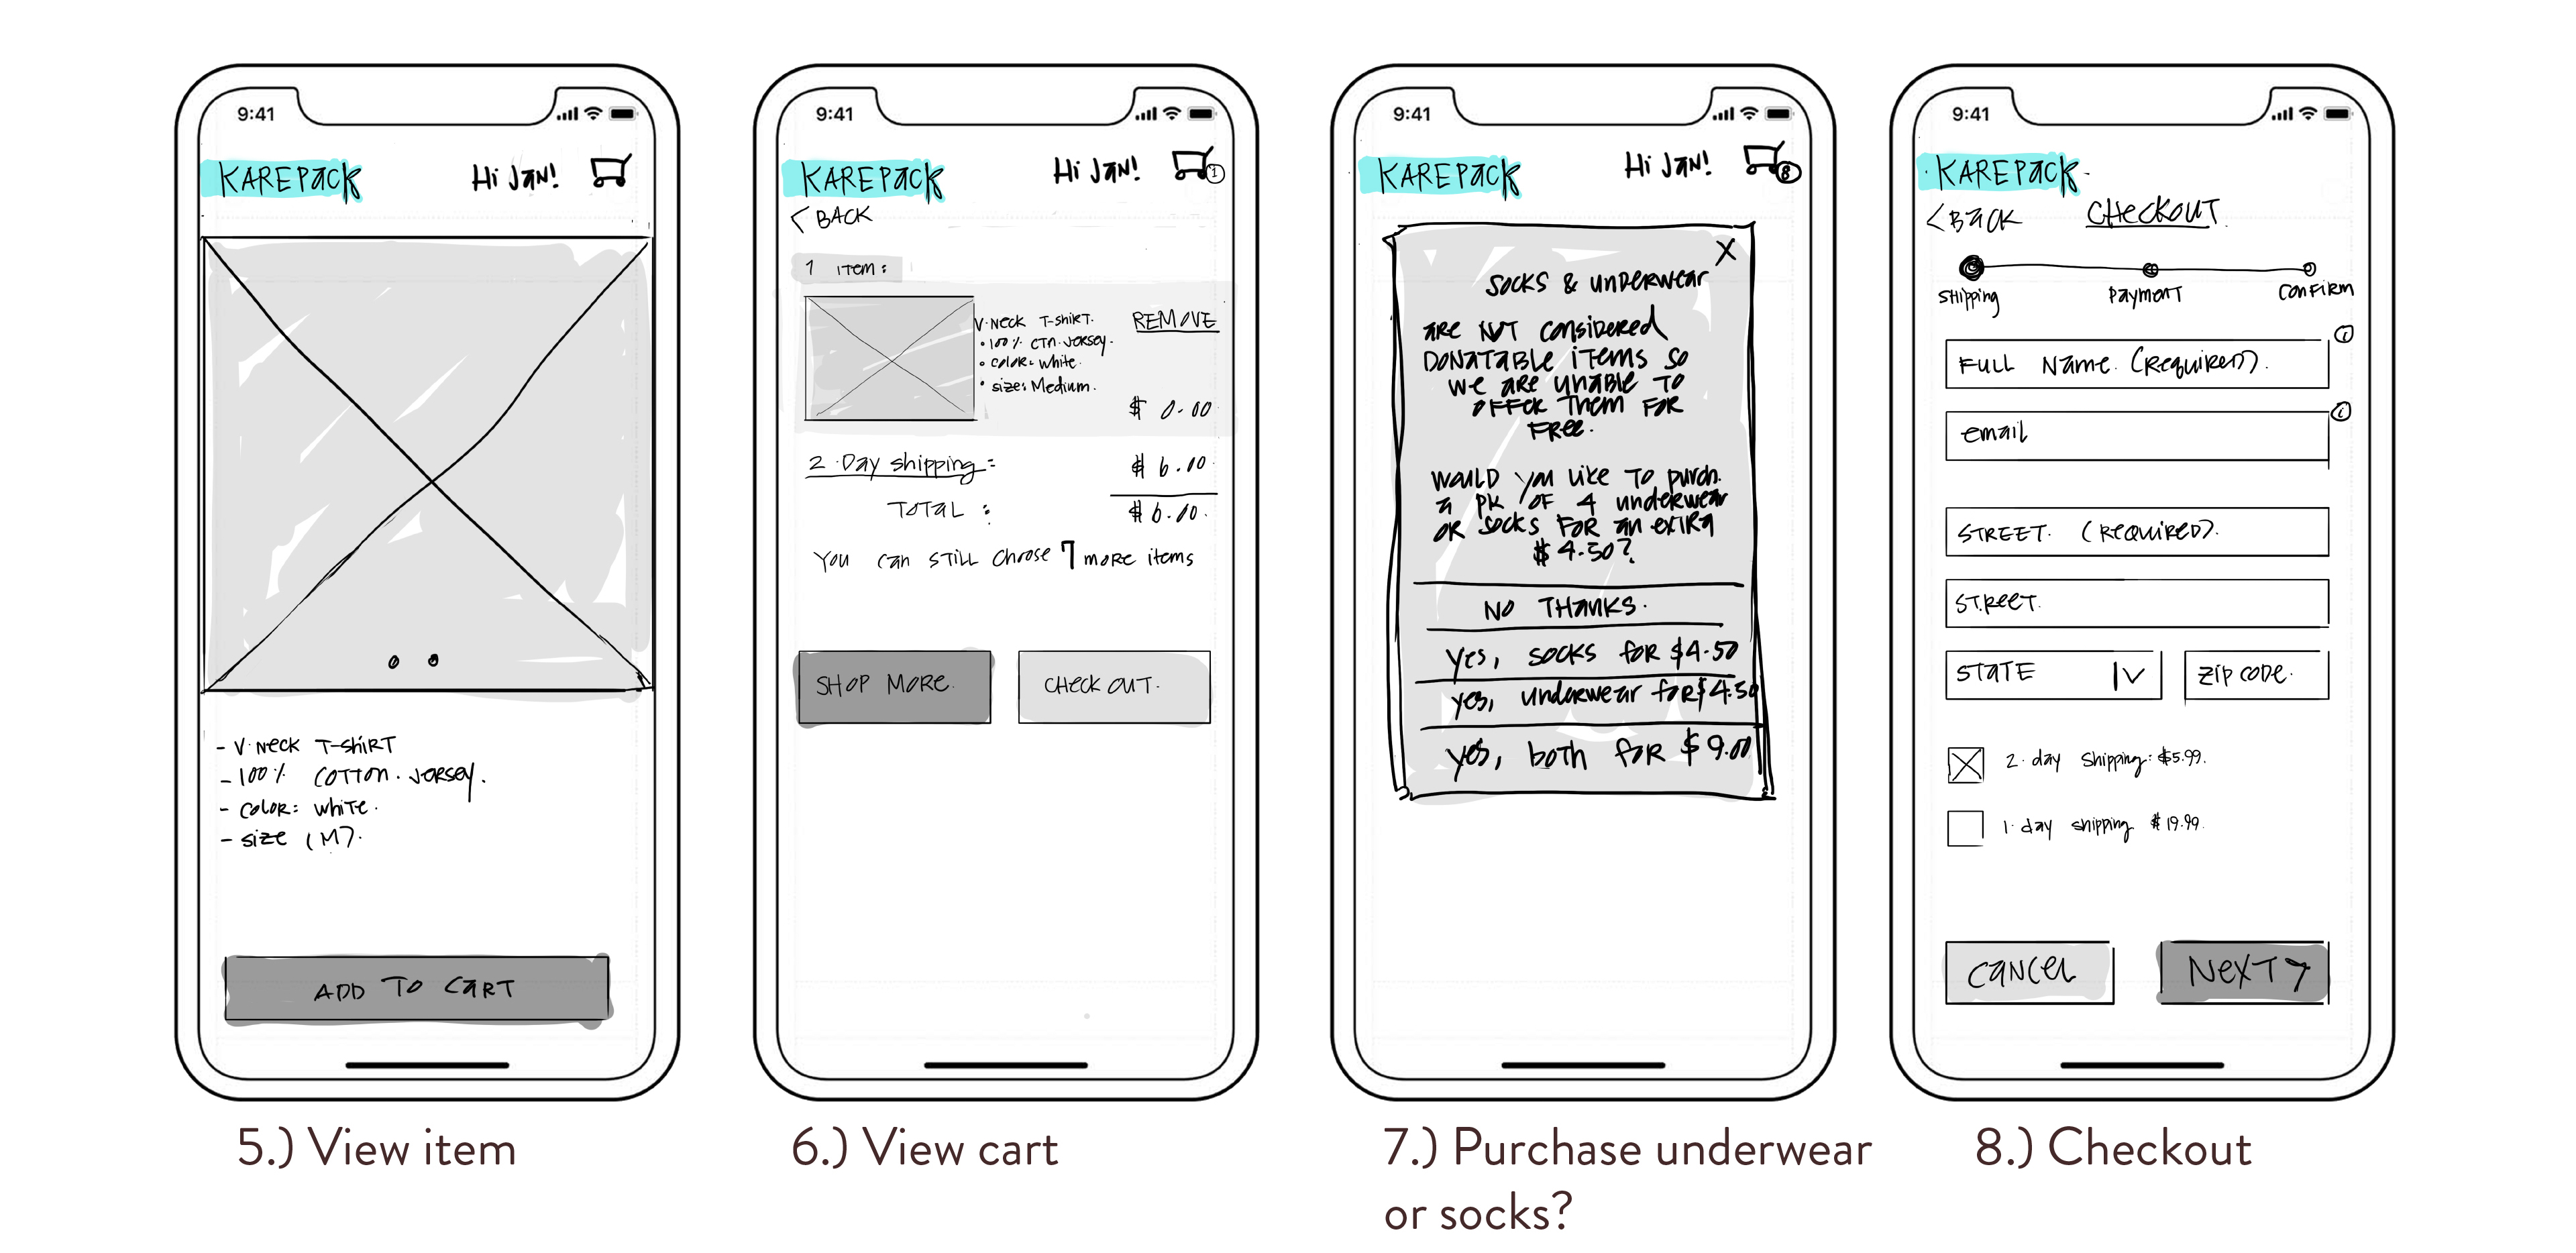 9:41
KAREPACK
Hi JAN!
- V·NECK T-SHIRT
- 100% COTTON·JERSEY.
- COLOR: WHITE.
- SIZE (M).
ADD TO CART
5.) View item
9:41
KAREPACK
Hi JAN!
1
< BACK
1 ITEM:
V·NECK T-SHIRT.
REMOVE
• 100% CTN·JERSEY.
• COLOR: White
• SIZE: Medium.
$ 0.00
2·Day shipping:
$ 6.00
TOTAL :
$ 6.00.
YOU CAN STILL CHOOSE 7 MORE ITEMS
SHOP MORE.
CHECK OUT.
6.) View cart
9:41
KAREPACK
Hi JAN!
8
X
SOCKS & UNDERWEAR
ARE NOT CONSIDERED
DONATABLE ITEMS SO
WE ARE UNABLE TO
OFFER THEM FOR
FREE.
WOULD YOU LIKE TO PURCH.
A PK OF 4 UNDERWEAR
OR SOCKS FOR AN EXTRA
$ 4.50?
NO THANKS.
YES, SOCKS FOR $4.50
YES, UNDERWEAR FOR $4.50
YES, BOTH FOR $9.00
7.) Purchase underwear
or socks?
9:41
KAREPACK
< BACK
CHECKOUT
Shipping
PAYMENT
CONFIRM
i
FULL NAME. (REQUIRED).
i
email
STREET. (REQUIRED).
STREET.
STATE
ZIP CODE.
2·day shipping: $5.99.
1·day shipping $19.99.
CANCEL
NEXT >
8.) Checkout